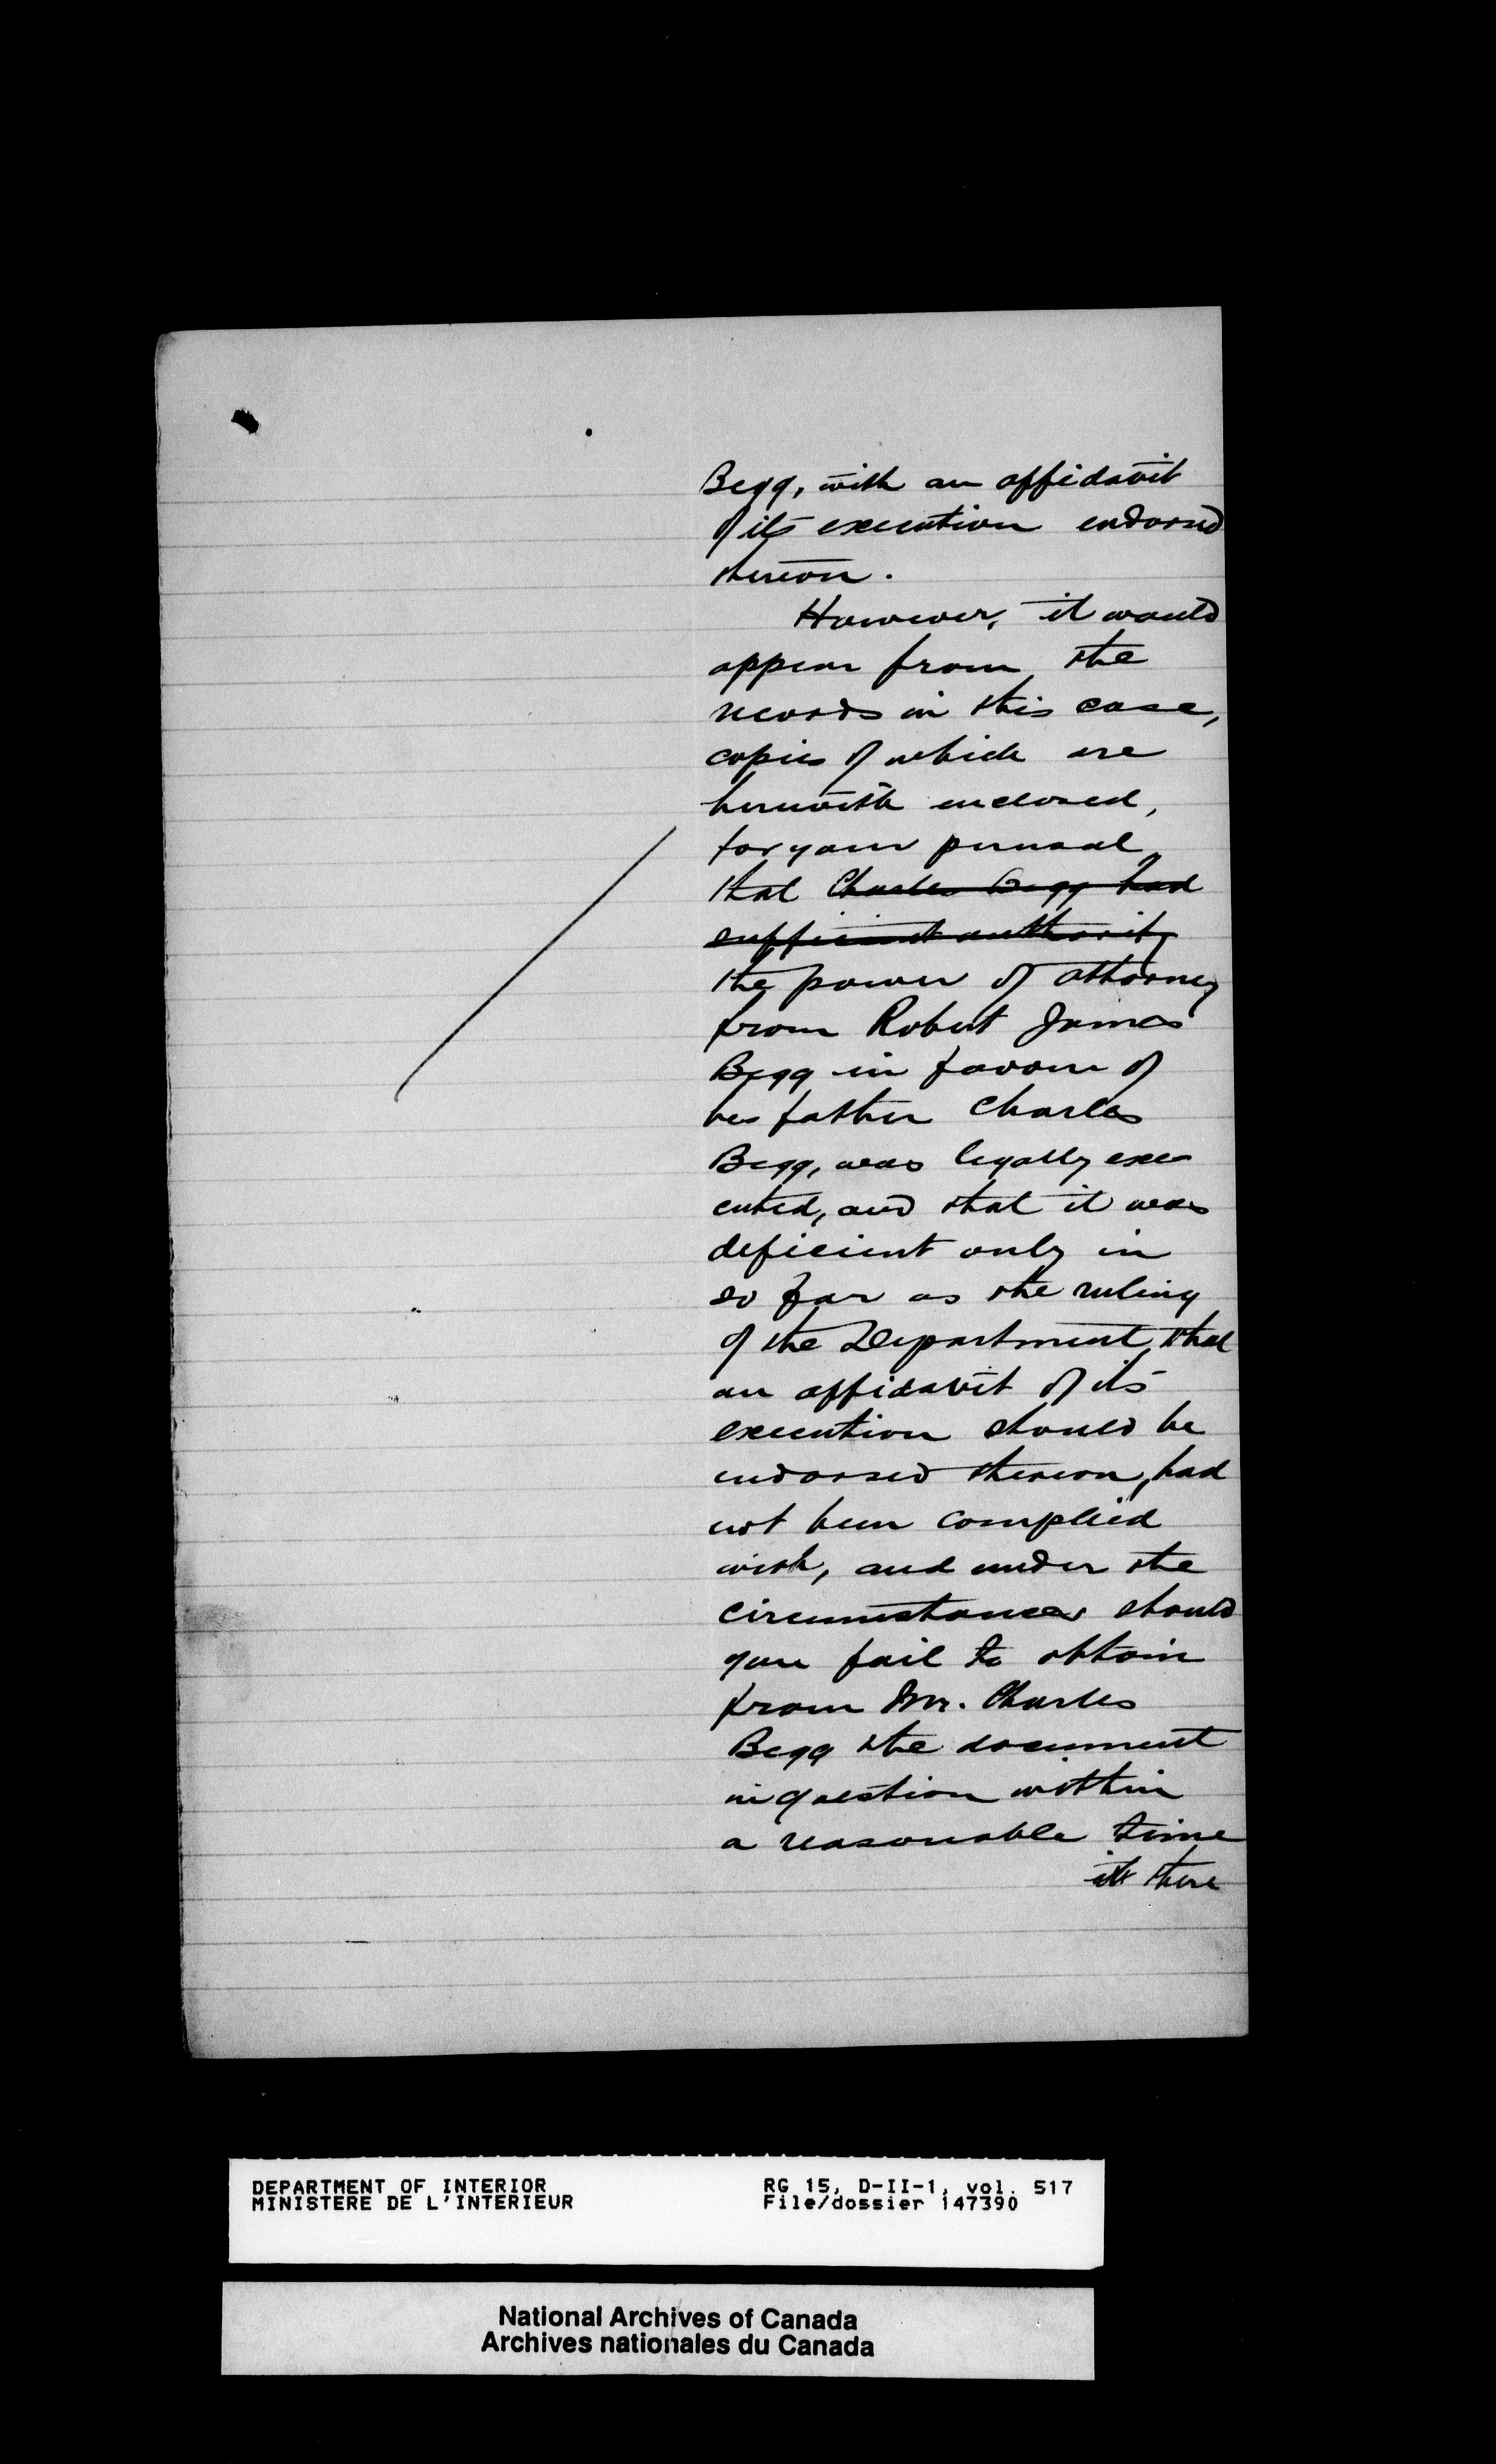 Begg, with an affidavit
of its execution endorsed
thereon.
However, it would
appear from the
records in this case,
copies of which are
herewith enclosed,
for your perusal,
that Charles Begg had
sufficient authority
the power of attorney
from Robert James
Begg in favour of
his father Charles
Begg, was legally exe-
cuted, and that it was
deficient only in
so far as the ruling
of the Department, that
an affidavit of its
execution should be
endorsed thereon, had
not been complied
with, and under the
circumstances should
you fail to obtain
from Mr. Charles
Begg the document
in question within
a reasonable time
there
DEPARTMENT OF INTERIOR
MINISTERE DE L'INTERIEUR
RG 15, D-II-1, vol. 517
File/dossier 147390
National Archives of Canada
Archives nationales du Canada